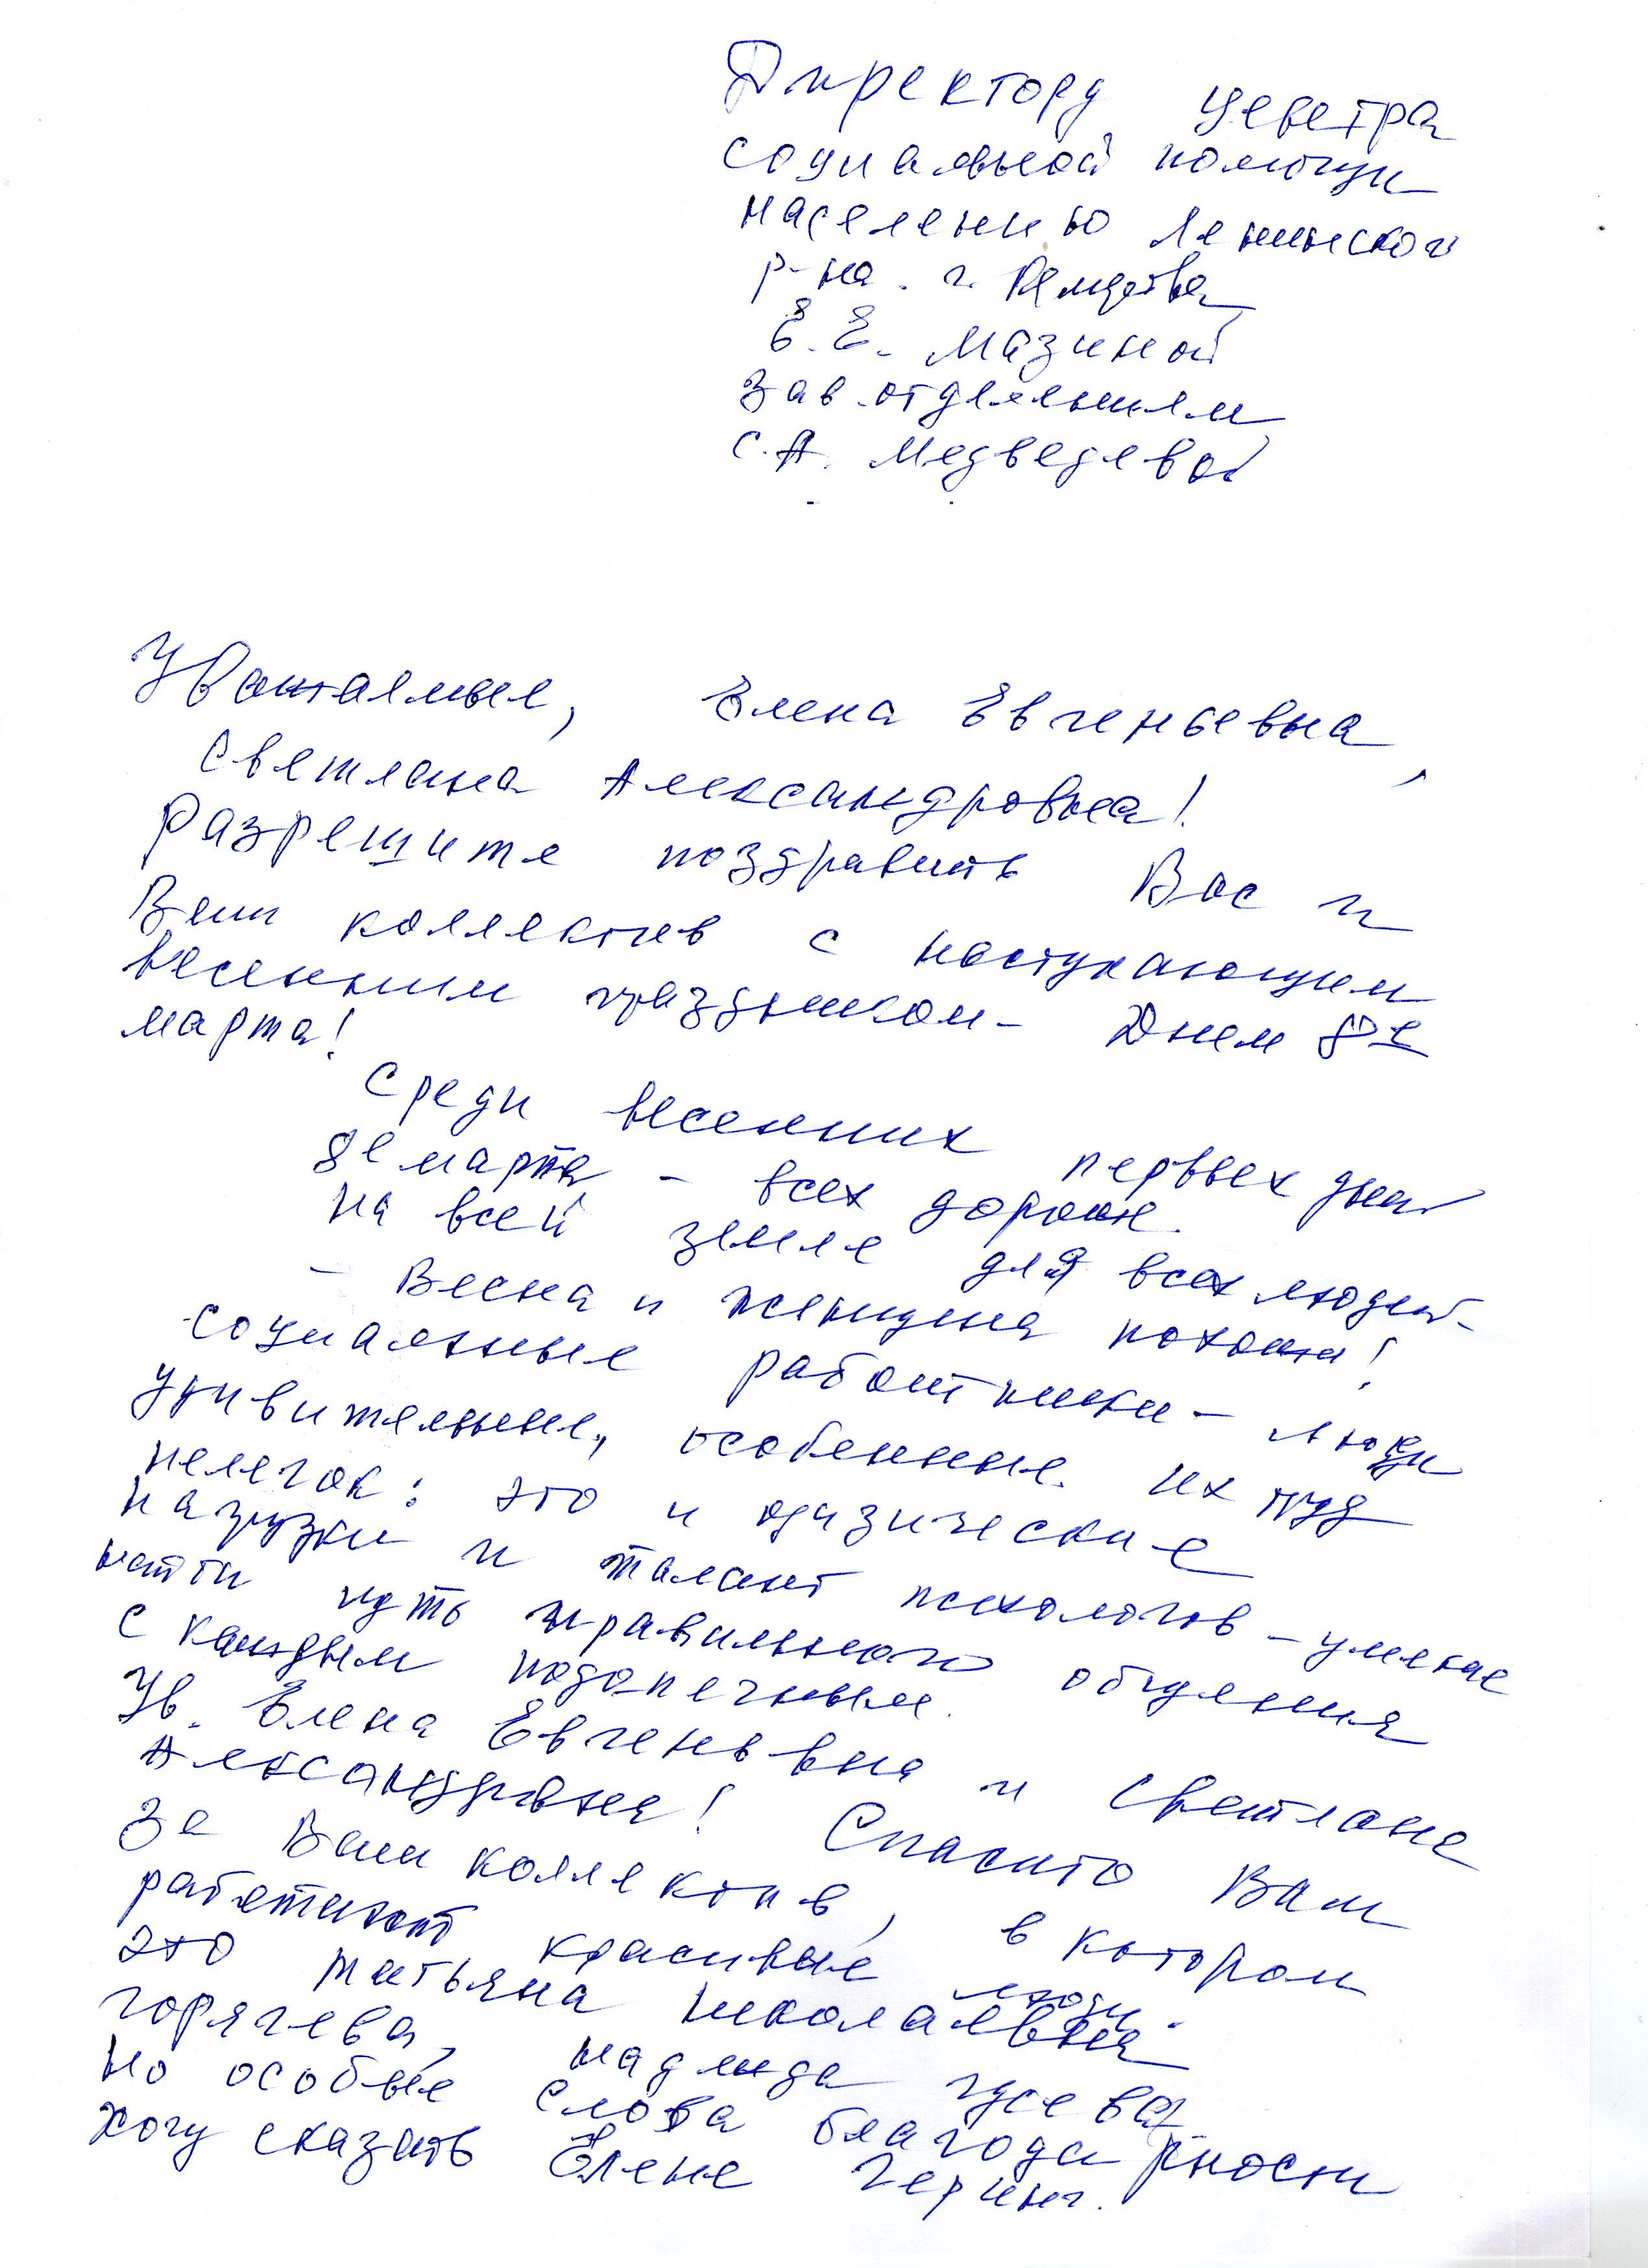 Директору центра
социальной помощи
населению Ленинского
р-на. г.
Е.Е. Мазиной
зав. отделением
С.А. Медведевой
Уважаемые, Елена Евгеньевна,
Светлана Александровна!
Разрешите поздравить Вас и
Ваш коллектив с наступающим
весенним праздником - Днем 8е
марта!
Среди весенних первых дней
8е марта - всех дороже.
На всей земле для всех людей -
- Весна и женщина похожи!
Социальные работники - люди
удивительные, особенные. Их труд
нелегок: это и физические
нагрузки и талант психологов - умение
найти путь правильного общения
с каждым подопечным.
Ув. Елена Евгеньевна и Светлана
Александровна! Спасибо Вам
За Ваш коллектив, в котором
работают красивые люди.
Это Татьяна Николаевна
Горячева, Надежда Гусева,
Но особые слова благодарности
хочу сказать Елене Геринг.